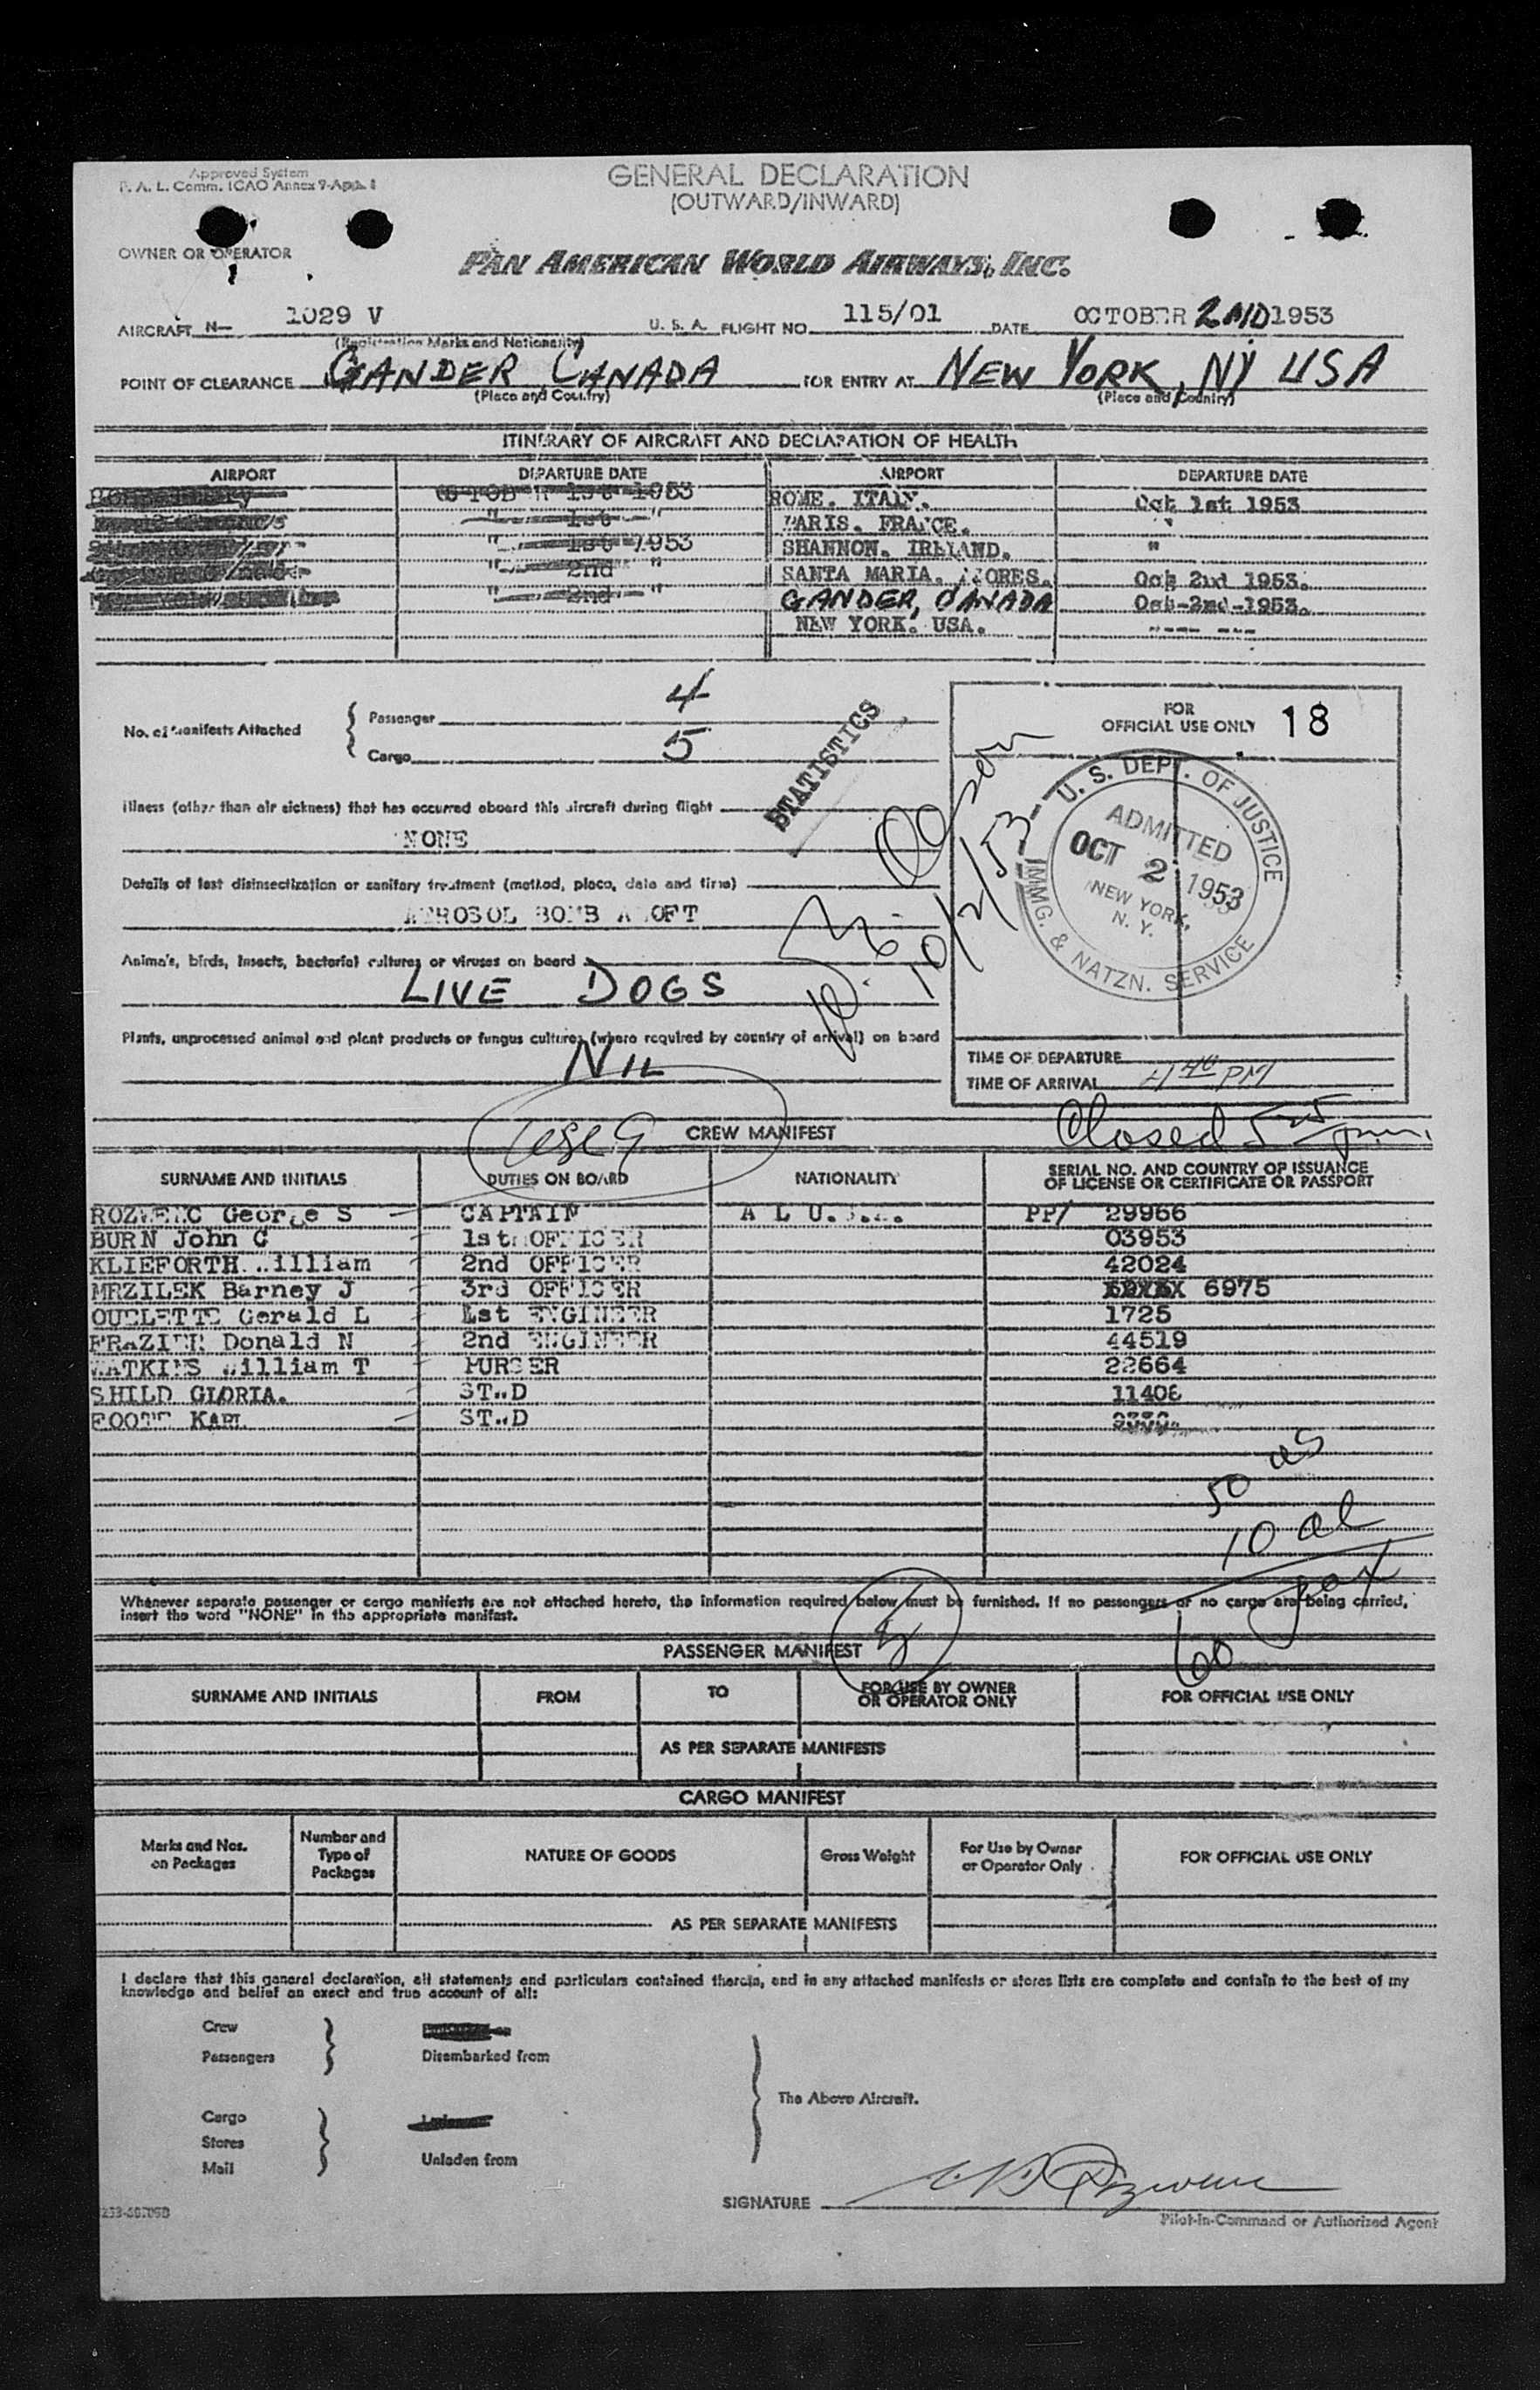 Approved System
F. A. L. Comm. ICAO Annex 9-App. 1
GENERAL DECLARATION
(OUTWARD/INWARD)
OWNER OR OPERATOR
PAN AMERICAN WORLD AIRWAYS, INC.
AIRCRAFT N— 1029 V U. S. A. FLIGHT NO. 115/01 DATE OCTOBER 2ND 1953
(Registration Marks and Nationality)
POINT OF CLEARANCE GANDER, CANADA FOR ENTRY AT NEW YORK, NY USA
(Place and Country) (Place and Country)
ITINERARY OF AIRCRAFT AND DECLARATION OF HEALTH
AIRPORT DEPARTURE DATE AIRPORT DEPARTURE DATE
1st 1953 ROME. ITALY. Oct 1st 1953
" 1st " PARIS. FRANCE. "
" 1st 1953 SHANNON. IRELAND. "
" 2nd " SANTA MARIA. AZORES. Oct 2nd 1953.
" 2nd " GANDER, CANADA Oct-2nd-1953.
NEW YORK. USA.
No. of Manifests Attached { Passenger 4
Cargo 5
STATISTICS
FOR
OFFICIAL USE ONLY 18
Illness (other than air sickness) that has occurred aboard this aircraft during flight
NONE
Details of last disinsectization or sanitary treatment (method, place, date and time)
AEROSOL BOMB ALOFT
Animals, birds, insects, bacterial cultures or viruses on board
LIVE DOGS
Plants, unprocessed animal and plant products or fungus cultures (where required by country of arrival) on board
NIL
10/2/53
U. S. DEPT. OF JUSTICE
ADMITTED
OCT 2 1953
NEW YORK,
N. Y.
IMMG. & NATZN. SERVICE
TIME OF DEPARTURE
TIME OF ARRIVAL 4 40 PM
Closed 5 25 pm.
CREW MANIFEST
SURNAME AND INITIALS DUTIES ON BOARD NATIONALITY SERIAL NO. AND COUNTRY OF ISSUANCE
OF LICENSE OR CERTIFICATE OR PASSPORT
ROZWENC George S CAPTAIN A L L U.S.A. PP/ 29966
BURN John C 1st OFFICER 03953
KLIEFORTH William 2nd OFFICER 42024
MRZILEK Barney J 3rd OFFICER 6975
OUELETTE Gerald L 1st ENGINEER 1725
FRAZIER Donald N 2nd ENGINEER 44519
WATKINS William T PURSER 22664
SHILD GLORIA. STWD 11408
FOOTE KARL STWD
50 us
10 al
60 pax
Whenever separate passenger or cargo manifests are not attached hereto, the information required below must be furnished. If no passengers or no cargo are being carried,
insert the word "NONE" in the appropriate manifest.
PASSENGER MANIFEST
SURNAME AND INITIALS FROM TO FOR USE BY OWNER
OR OPERATOR ONLY FOR OFFICIAL USE ONLY
AS PER SEPARATE MANIFESTS
CARGO MANIFEST
Marks and Nos.
on Packages Number and
Type of
Packages NATURE OF GOODS Gross Weight For Use by Owner
or Operator Only FOR OFFICIAL USE ONLY
AS PER SEPARATE MANIFESTS
I declare that this general declaration, all statements and particulars contained therein, and in any attached manifests or stores lists are complete and contain to the best of my
knowledge and belief an exact and true account of all:
Crew
Passengers Disembarked from
The Above Aircraft.
Cargo
Stores
Mail Unladen from
SIGNATURE
Pilot-in-Command or Authorized Agent